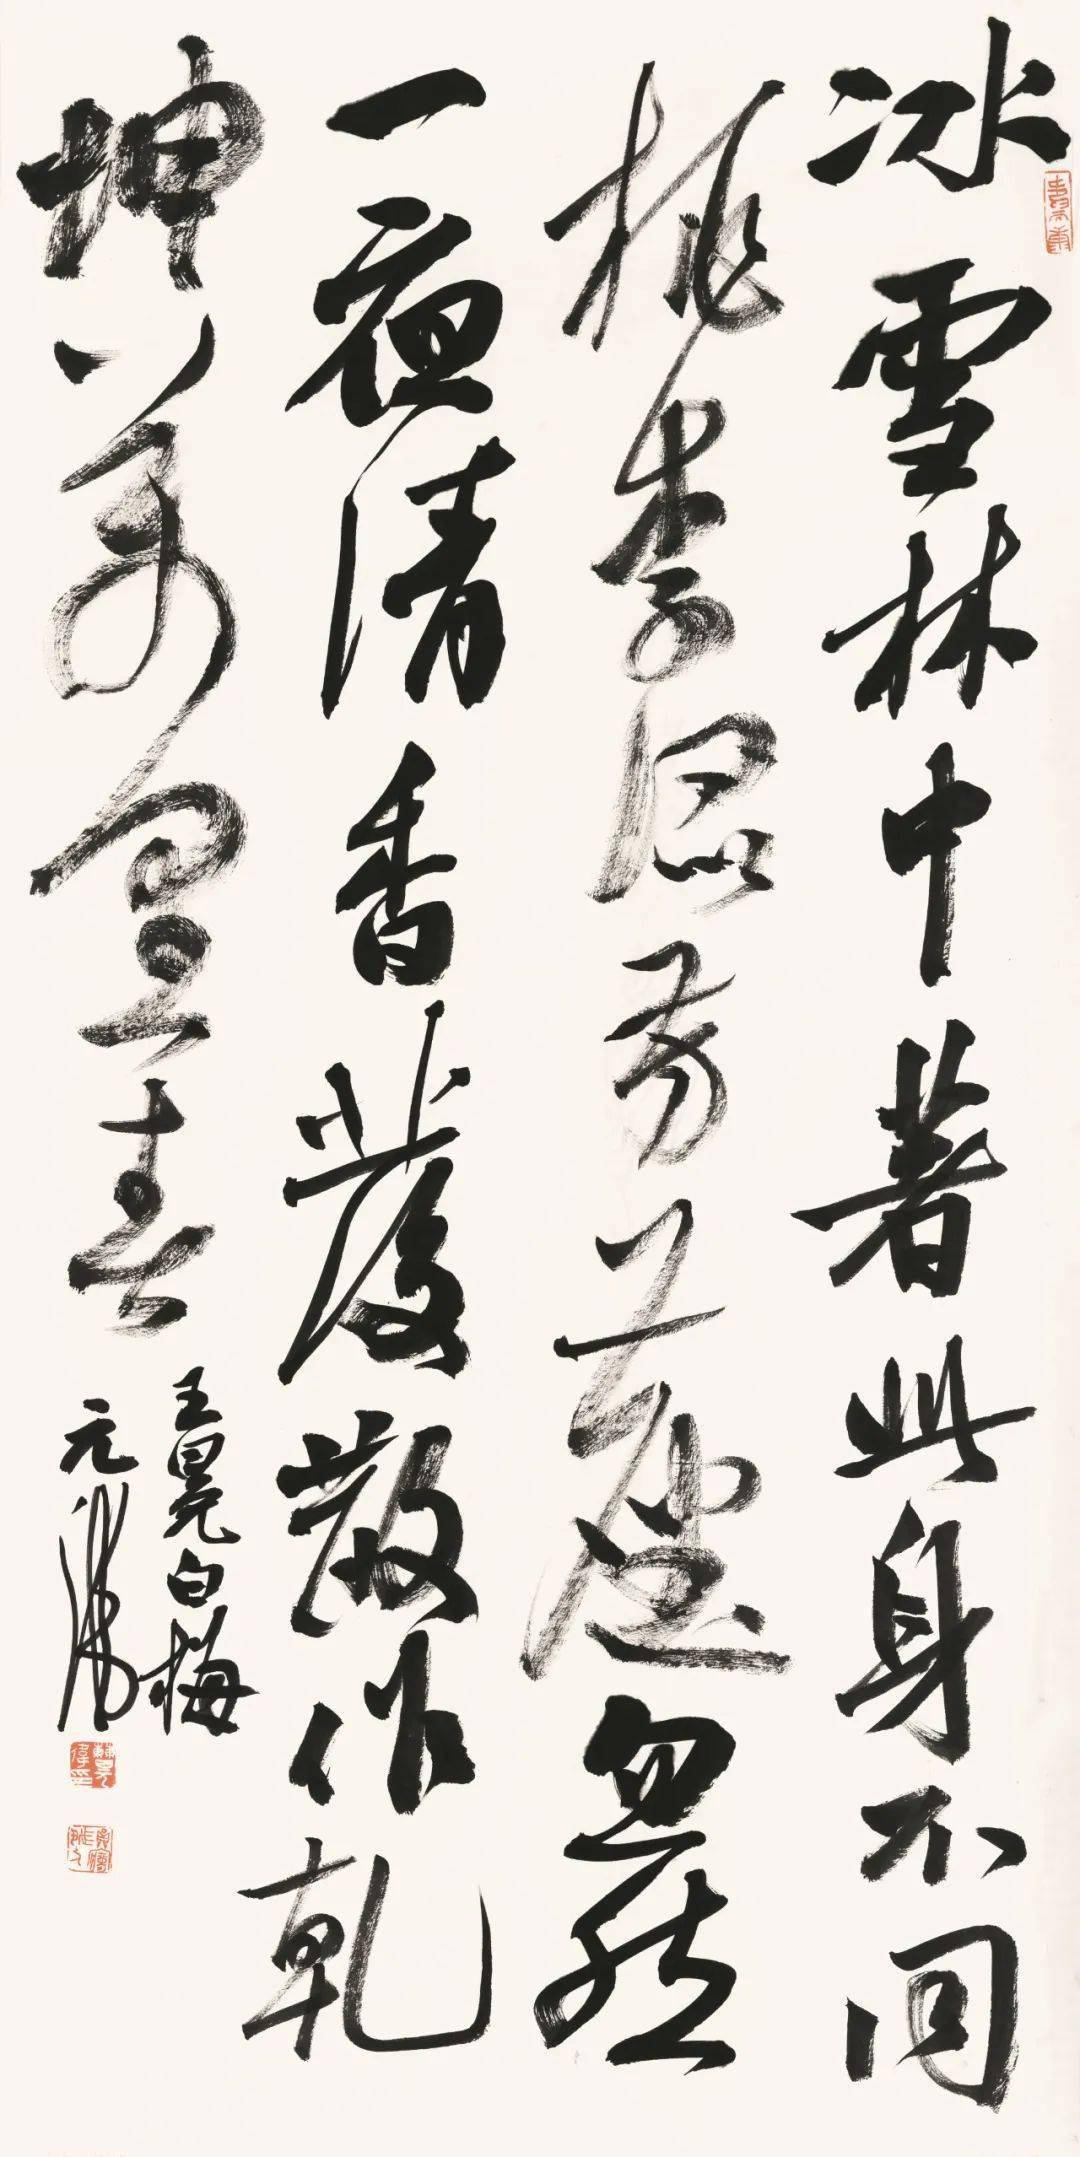 冰雪林中著此身不同
桃李混芳塵忽然
一夜清香發散作乾
坤萬里春
王冕白梅
元